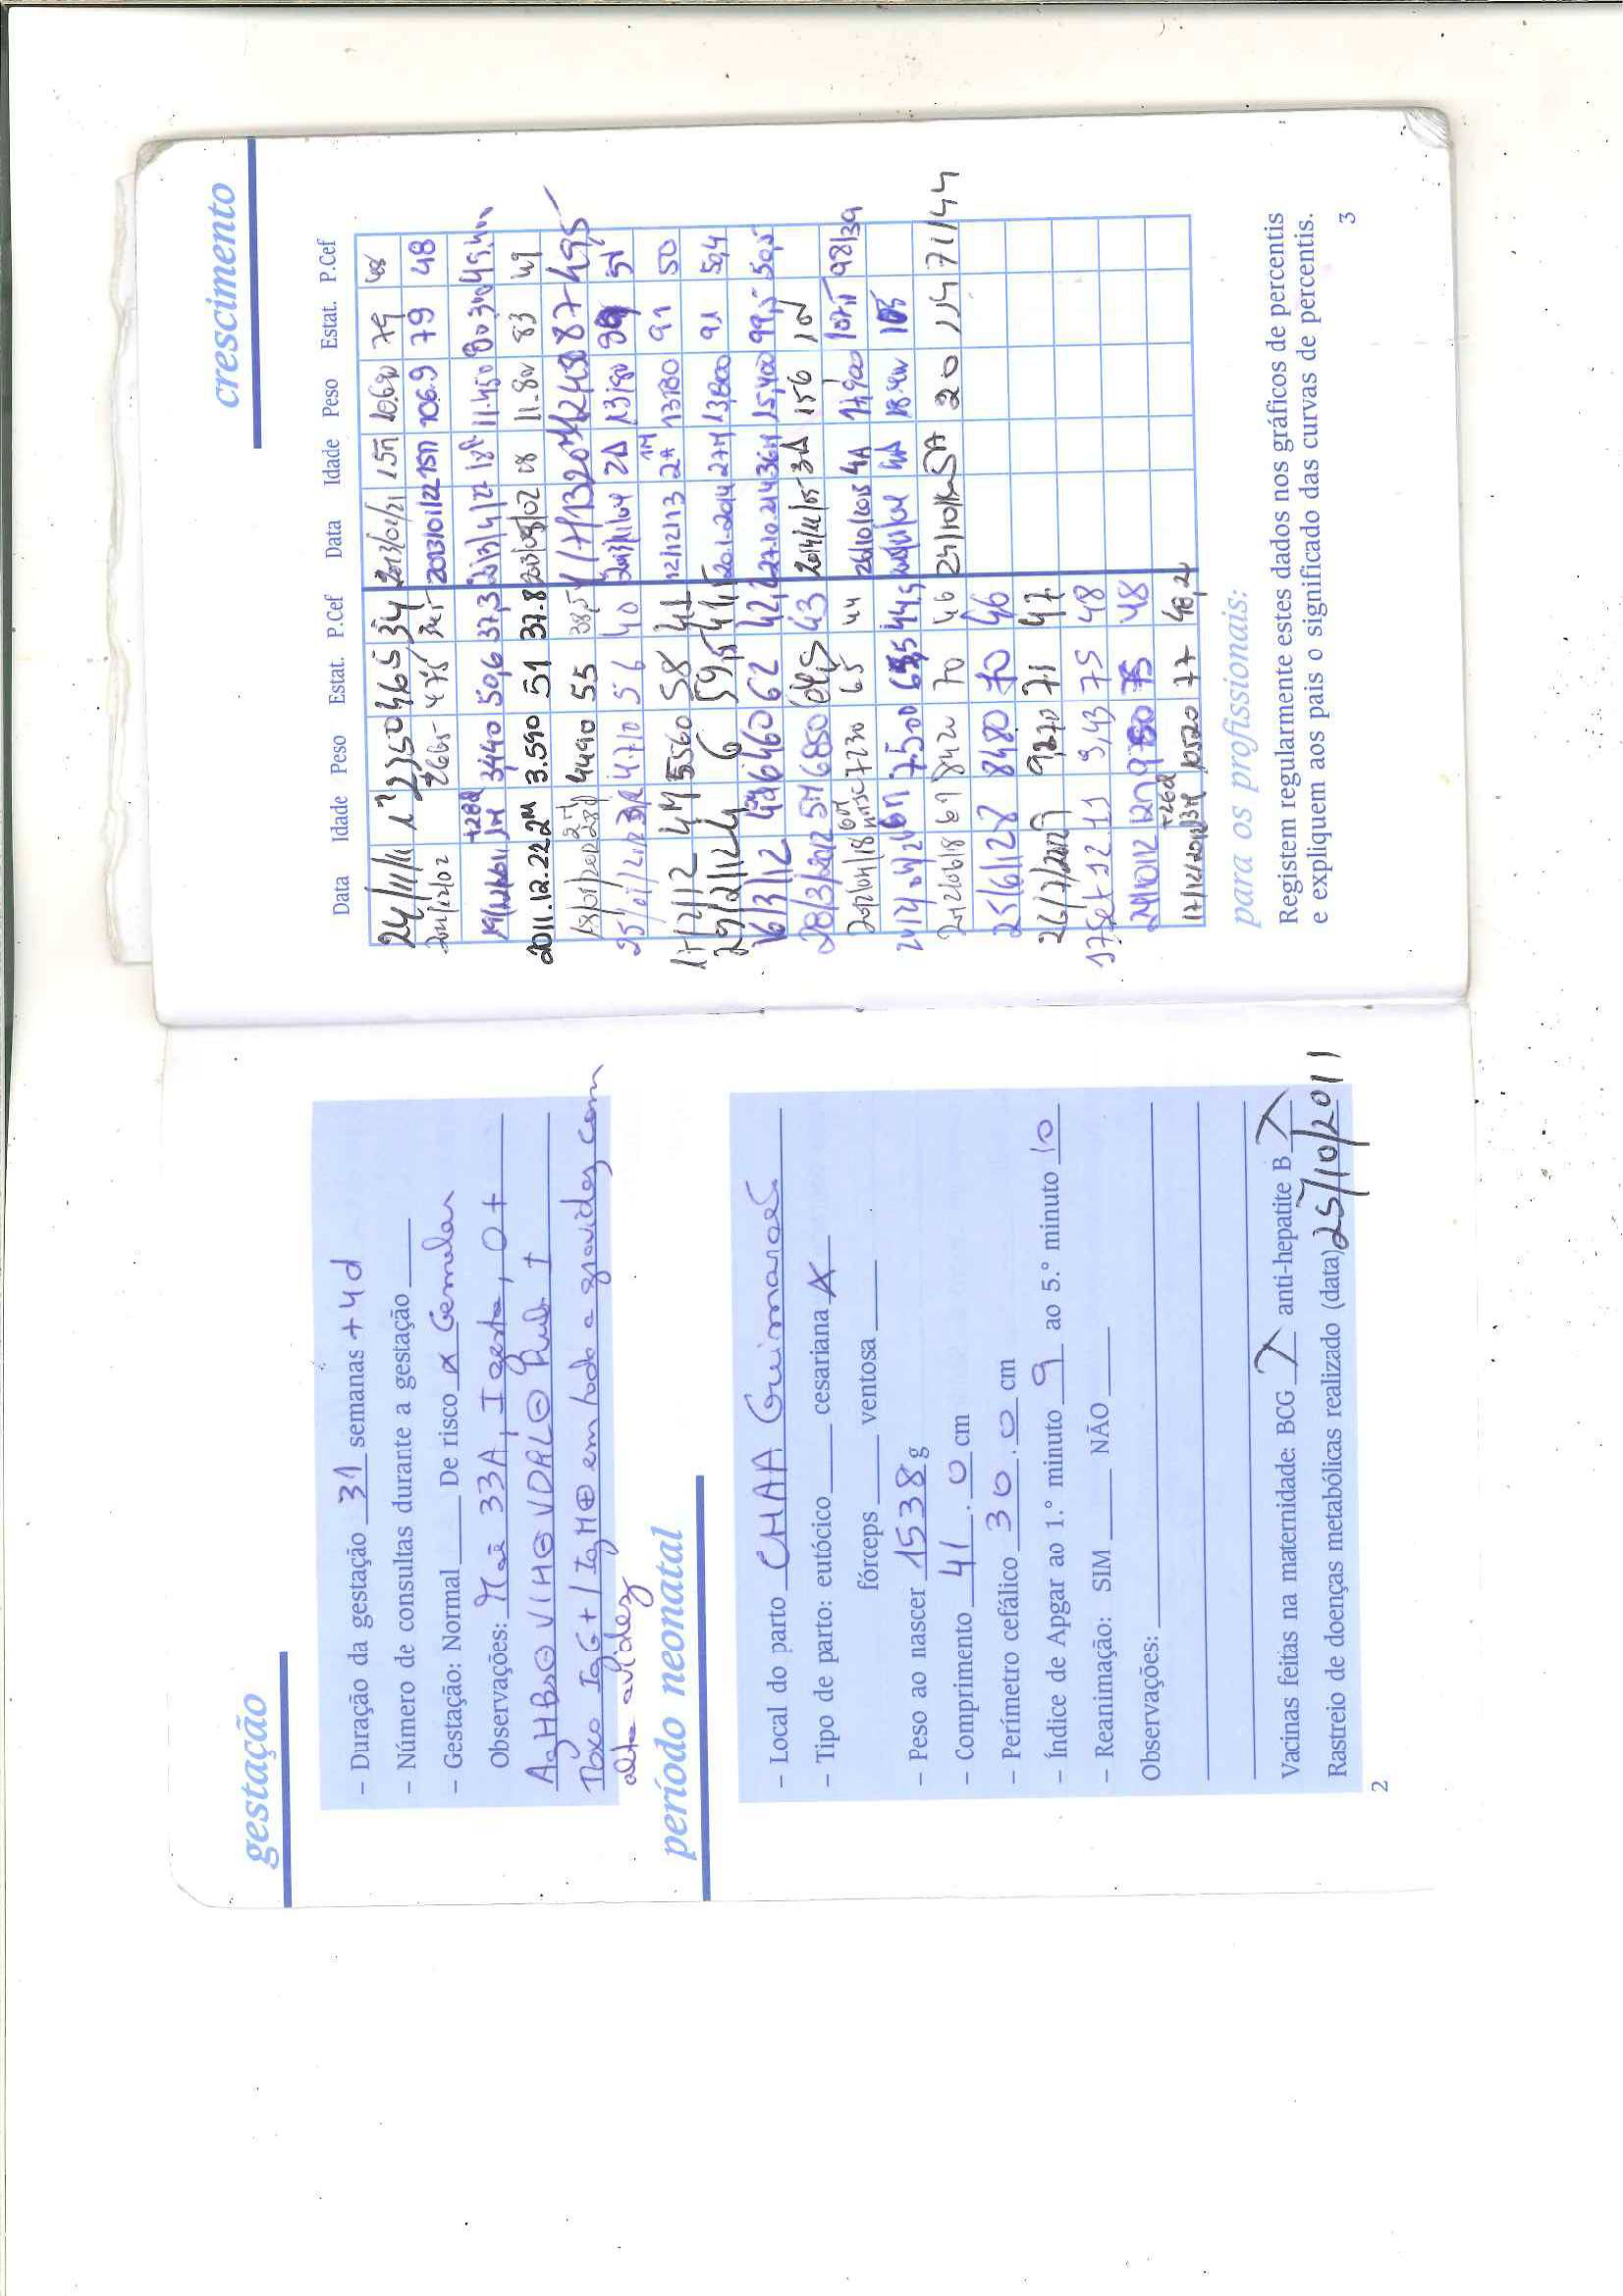 gestação
– Duração da gestação 31 semanas + 4d
– Número de consultas durante a gestação
– Gestação: Normal De risco x Gemelar
Observações: Mãe 33A, I gesta, O+
AgHBs⊖ VIH⊖ VDRL⊖ Rub. I
Toxo IgG+/IgM⊕ em toda a gravidez com
alta avidez
período neonatal
– Local do parto CHAA Guimarães
– Tipo de parto: eutócico cesariana X
fórceps ventosa
– Peso ao nascer 1538 g
– Comprimento 41.0 cm
– Perímetro cefálico 30.0 cm
– Índice de Apgar ao 1.º minuto 9 ao 5.º minuto 10
– Reanimação: SIM NÃO
Observações:
Vacinas feitas na maternidade: BCG anti-hepatite B
Rastreio de doenças metabólicas realizado (data) 25/10/2011
2
crescimento
Data Idade Peso Estat. P.Cef Data Idade Peso Estat. P.Cef
24/11/11 2350 46.5 34 15M 79
2665 47,5 2013/01/22 15M 106.9 79 48
+28d 3,440 50,6 37,3 11.450
2011.12.22 2M 3.590 51 37.8 11.80 83 49
18/01/2012 4490 55 38,5 87 49,5
25/01/2012 4.710 56 40 2A
17/2/12 4M 5560 58 41 12/12/13 2A 1M 13.180 91 50
29/2/12 4 6 59,5 41,5 20.1.2014 27M 13,800 91 50,4
16/3/12 6460 62 42,2 27.10.214 36M 15,400 99,5 50,5
28/3/2012 5M 6850 43 3A 156
2012/04/18 6M 7230 65 44 26/10/2015 4A 107,5 98/39
6M 7.500 44,5 4A 105
2012/06/18 8420 70 46 5A 20 114 71/44
25/6/12 8 8480 70 46
26/7/2012 9 9270 71 47
17 Set 12 11 9,43 75 48
24/10/12 12M 75 48
+26d
17/12/2012 10520 77 48,2
para os profissionais:
Registem regularmente estes dados nos gráficos de percentis
e expliquem aos pais o significado das curvas de percentis.
3